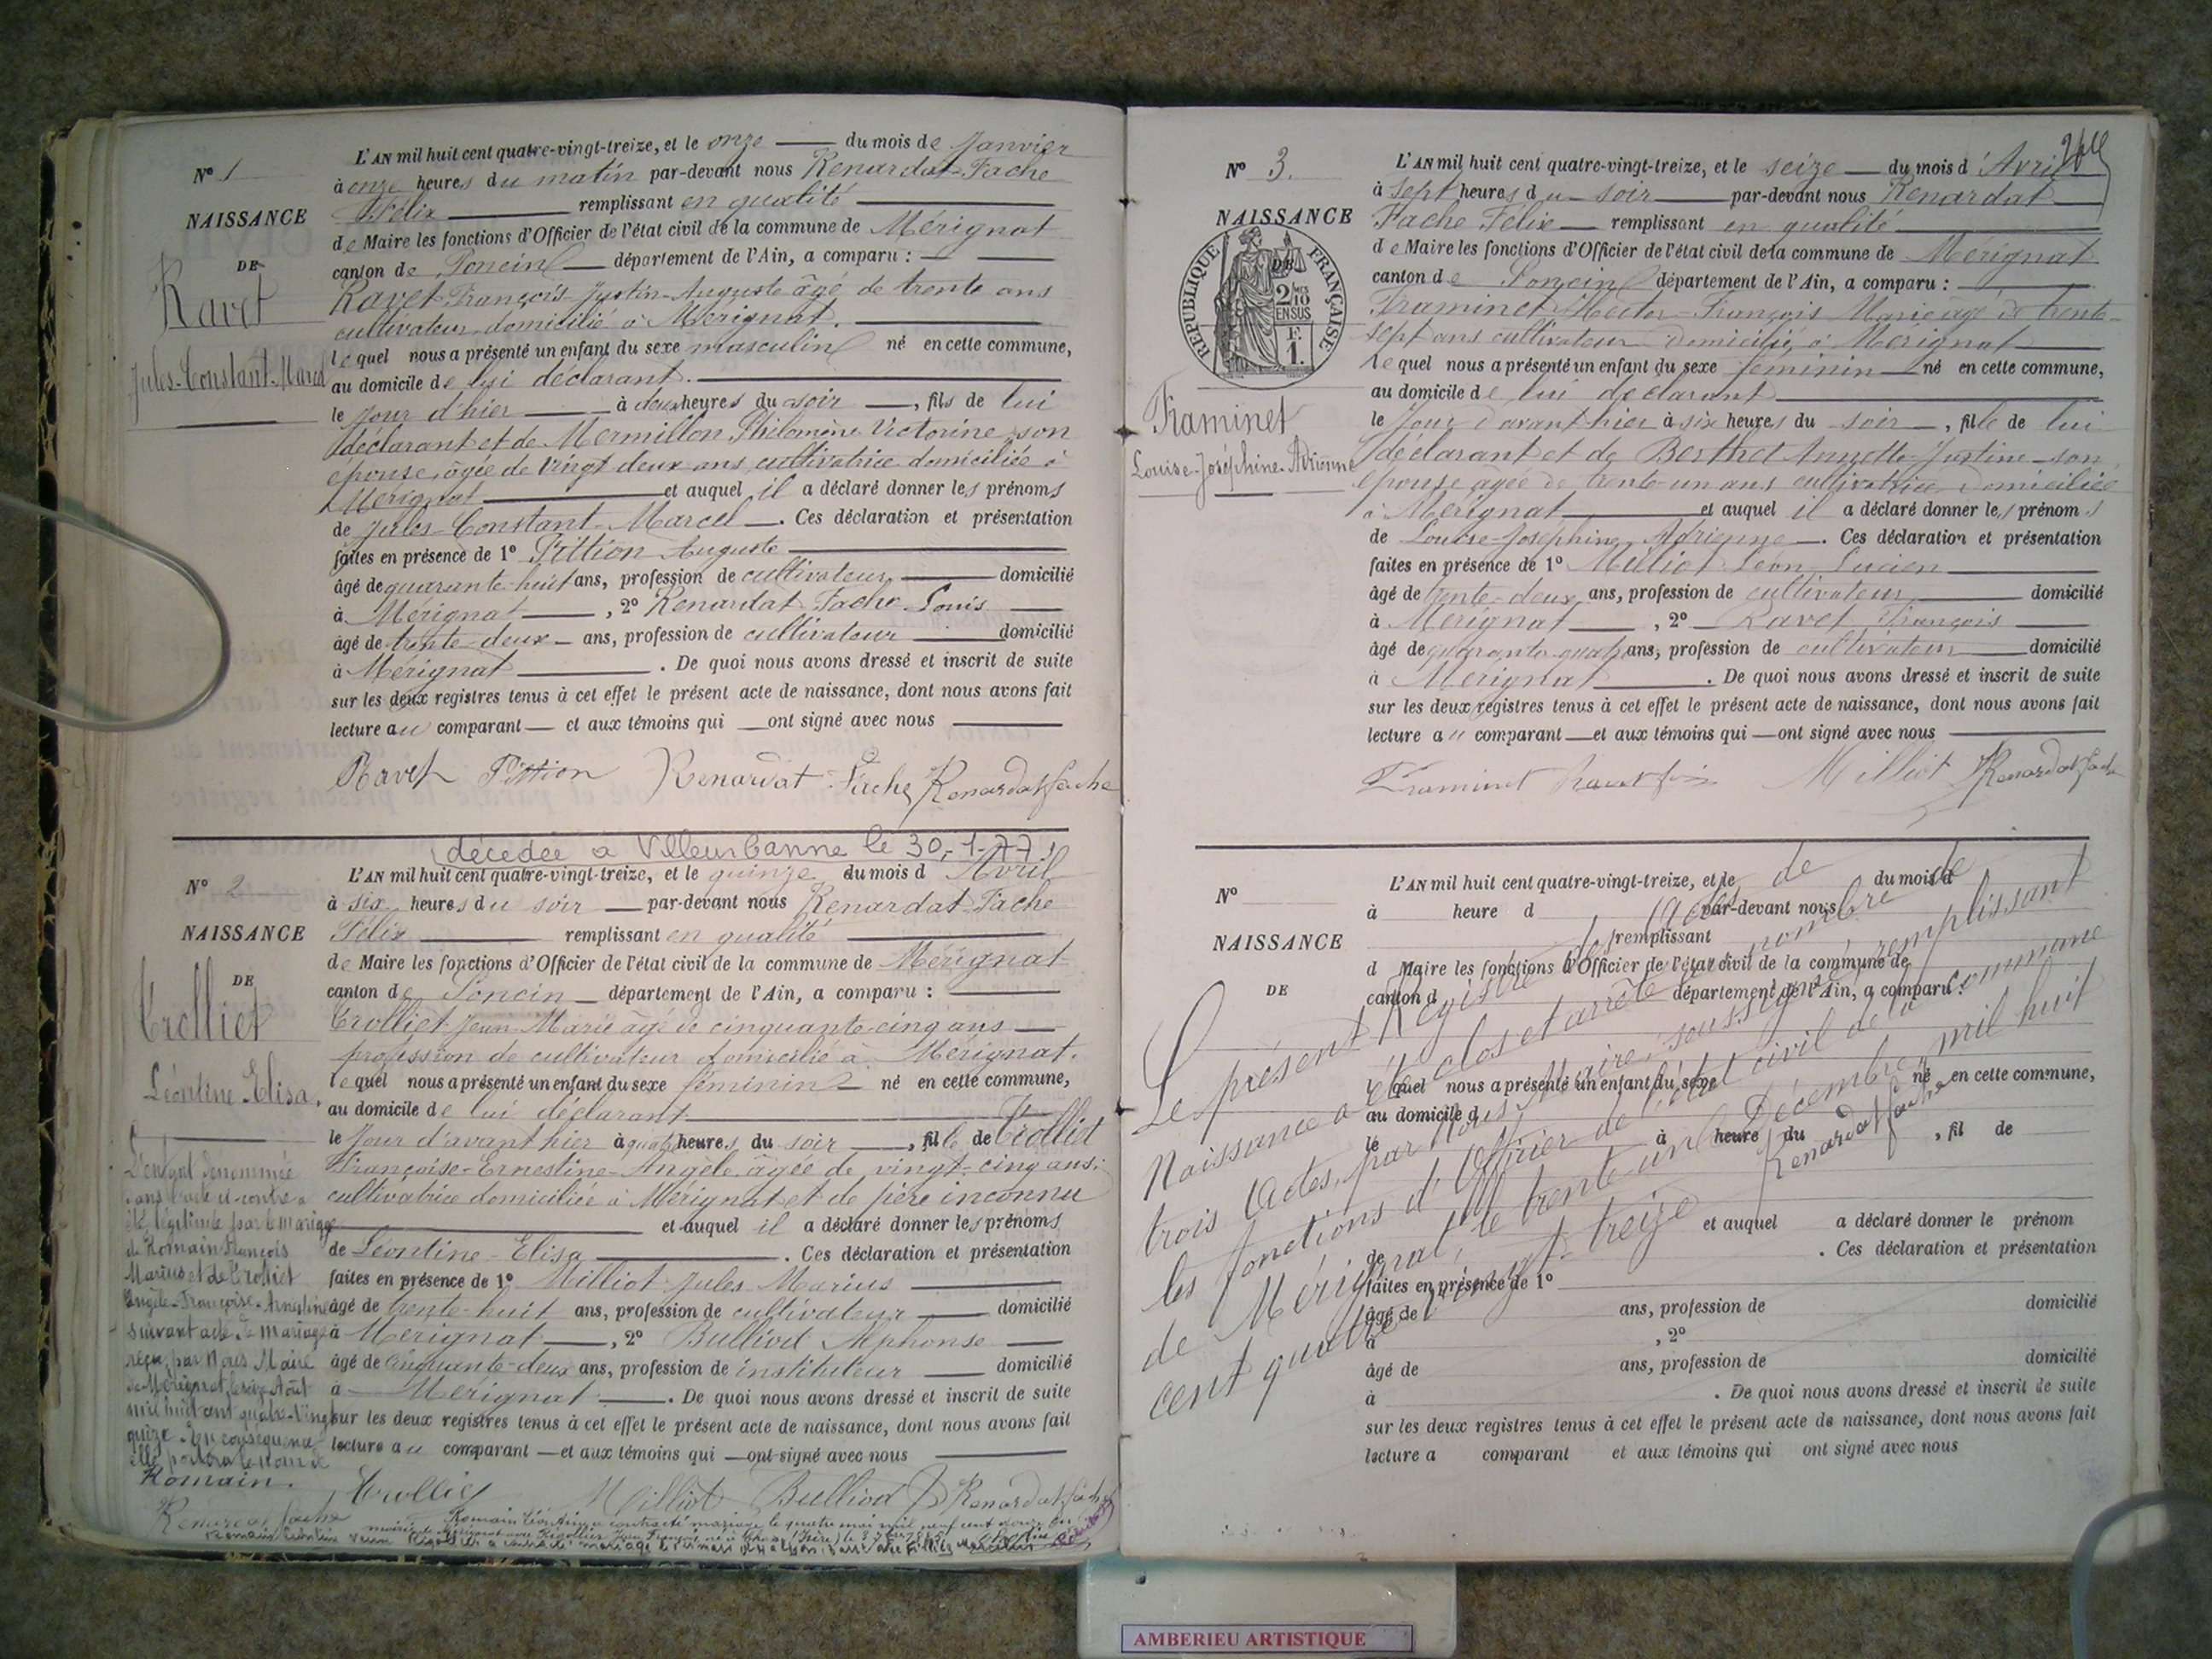 N° 1
NAISSANCE
DE
Ravet
Jules-Constant-Marcel
L'AN mil huit cent quatre-vingt-treize, et le onze du mois de Janvier
à onze heures du matin par-devant nous Renardat-Fache
Félix remplissant en qualité
de Maire les fonctions d'Officier de l'état civil de la commune de Mérignat
canton de Poncin département de l'Ain, a comparu :
Ravet François-Justin-Auguste âgé de trente ans
cultivateur domicilié à Mérignat.
lequel nous a présenté un enfant du sexe masculin né en cette commune,
au domicile de lui déclarant.
le jour d'hier à deux heures du soir, fils de lui
déclarant et de Mermillon Philomène Victorine son
épouse, âgée de vingt deux ans cultivatrice domiciliée à
Mérignat et auquel il a déclaré donner les prénoms
de Jules-Constant-Marcel. Ces déclaration et présentation
faites en présence de 1° Pittion Auguste
âgé de quarante-huit ans, profession de cultivateur domicilié
à Mérignat, 2° Renardat Fache Louis
âgé de trente-deux ans, profession de cultivateur domicilié
à Mérignat. De quoi nous avons dressé et inscrit de suite
sur les deux registres tenus à cet effet le présent acte de naissance, dont nous avons fait
lecture au comparant et aux témoins qui ont signé avec nous
Ravet Pittion Renardat-Fache Renardat fache
décédée à Villeurbanne le 30-1-77
N° 2
NAISSANCE
DE
Trolliet
Léontine-Elisa.
L'AN mil huit cent quatre-vingt-treize, et le quinze du mois d Avril
à six heures du soir par-devant nous Renardat-Fache
Félix remplissant en qualité
de Maire les fonctions d'Officier de l'état civil de la commune de Mérignat
canton de Poncin département de l'Ain, a comparu :
Trolliet Jean-Marie âgé de cinquante-cinq ans
profession de cultivateur domicilié à Mérignat.
lequel nous a présenté un enfant du sexe féminin né en cette commune,
au domicile de lui déclarant
le jour d'avant hier à quatre heures du soir, fille de Trolliet
Françoise-Ernestine-Angèle âgée de vingt-cinq ans
cultivatrice domiciliée à Mérignat et de père inconnu
et auquel il a déclaré donner les prénoms
de Léontine-Elisa. Ces déclaration et présentation
faites en présence de 1° Milliot Jules Marius
âgé de trente-huit ans, profession de cultivateur domicilié
à Mérignat, 2° Bulliod Alphonse
âgé de cinquante-deux ans, profession de instituteur domicilié
à Mérignat. De quoi nous avons dressé et inscrit de suite
sur les deux registres tenus à cet effet le présent acte de naissance, dont nous avons fait
lecture au comparant et aux témoins qui ont signé avec nous
Trolliet Milliot Bulliod Renardat fache
L'enfant dénommée
dans l'acte ci-contre a
été légitimée par le mariage
de Romain François
Marius et de Trolliet
Angèle-Françoise-Ernestine
suivant acte de mariage
reçu par Nous Maire
de Mérignat, le seize Août
mil huit cent quatre-vingt
quinze. En conséquence
elle portera le nom de
Romain.
Renardat fache
Romain Léontine a contracté mariage le quatre mai mil neuf cent
N° 3.
NAISSANCE
DE
RÉPUBLIQUE FRANÇAISE
2/10
EN SUS
F.
1.
Framinet
Louise-Joséphine-Adrienne
L'AN mil huit cent quatre-vingt-treize, et le seize du mois d'Avril
à sept heures du soir par-devant nous Renardat
Fache Félix remplissant en qualité
de Maire les fonctions d'Officier de l'état civil de la commune de Mérignat
canton de Poncin département de l'Ain, a comparu :
Framinet Hector-François Marie âgé de trente-
sept ans cultivateur domicilié à Mérignat
lequel nous a présenté un enfant du sexe féminin né en cette commune,
au domicile de lui déclarant
le jour d'avant hier à six heures du soir, fille de lui
déclarant et de Berthet Annette-Justine son
épouse âgée de trente-un ans cultivatrice domiciliée
à Mérignat et auquel il a déclaré donner les prénoms
de Louise-Joséphine-Adrienne. Ces déclaration et présentation
faites en présence de 1° Milliot Léon Lucien
âgé de trente-deux ans, profession de cultivateur domicilié
à Mérignat, 2° Ravet François
âgé de quarante-quatre ans, profession de cultivateur domicilié
à Mérignat. De quoi nous avons dressé et inscrit de suite
sur les deux registres tenus à cet effet le présent acte de naissance, dont nous avons fait
lecture au comparant et aux témoins qui ont signé avec nous
Framinet Ravet Milliot Renardat fache
N°
NAISSANCE
DE
L'AN mil huit cent quatre-vingt-treize, et le du mois d
à heure d par-devant nous
remplissant
d Maire les fonctions d'Officier de l'état civil de la commune de
canton d département de l'Ain, a comparu :
l quel nous a présenté un enfant du sexe né en cette commune,
au domicile d
le à heure du , fil de
et auquel a déclaré donner le prénom
de . Ces déclaration et présentation
faites en présence de 1°
âgé de ans, profession de domicilié
à , 2°
âgé de ans, profession de domicilié
à . De quoi nous avons dressé et inscrit de suite
sur les deux registres tenus à cet effet le présent acte de naissance, dont nous avons fait
lecture a comparant et aux témoins qui ont signé avec nous
Le présent Registre des actes de
Naissance a été clos et arrêté au nombre de
trois Actes, par Nous, Maire, soussigné remplissant
les fonctions d'Officier de l'état civil de la commune
de Mérignat, le trente un Décembre mil huit
cent quatre vingt-treize
Renardat fache
AMBERIEU ARTISTIQUE